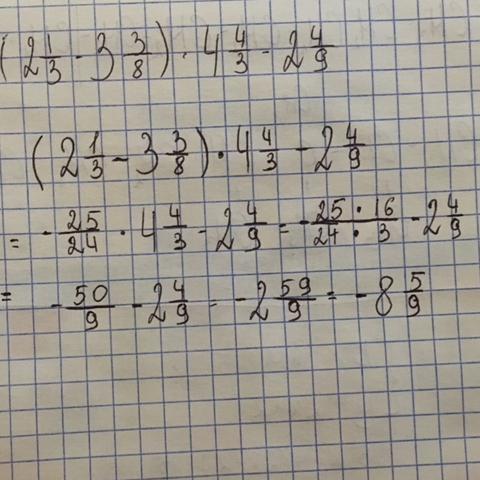 (2 1/3 - 3 3/8) · 4 4/3 - 2 4/9
(2 1/3 - 3 3/8) · 4 4/3 - 2 4/9
= - 25/24 · 4 4/3 - 2 4/9 = - 25 · 16/24 · 3 - 2 4/9
= - 50/9 - 2 4/9 = - 2 59/9 = - 8 5/9